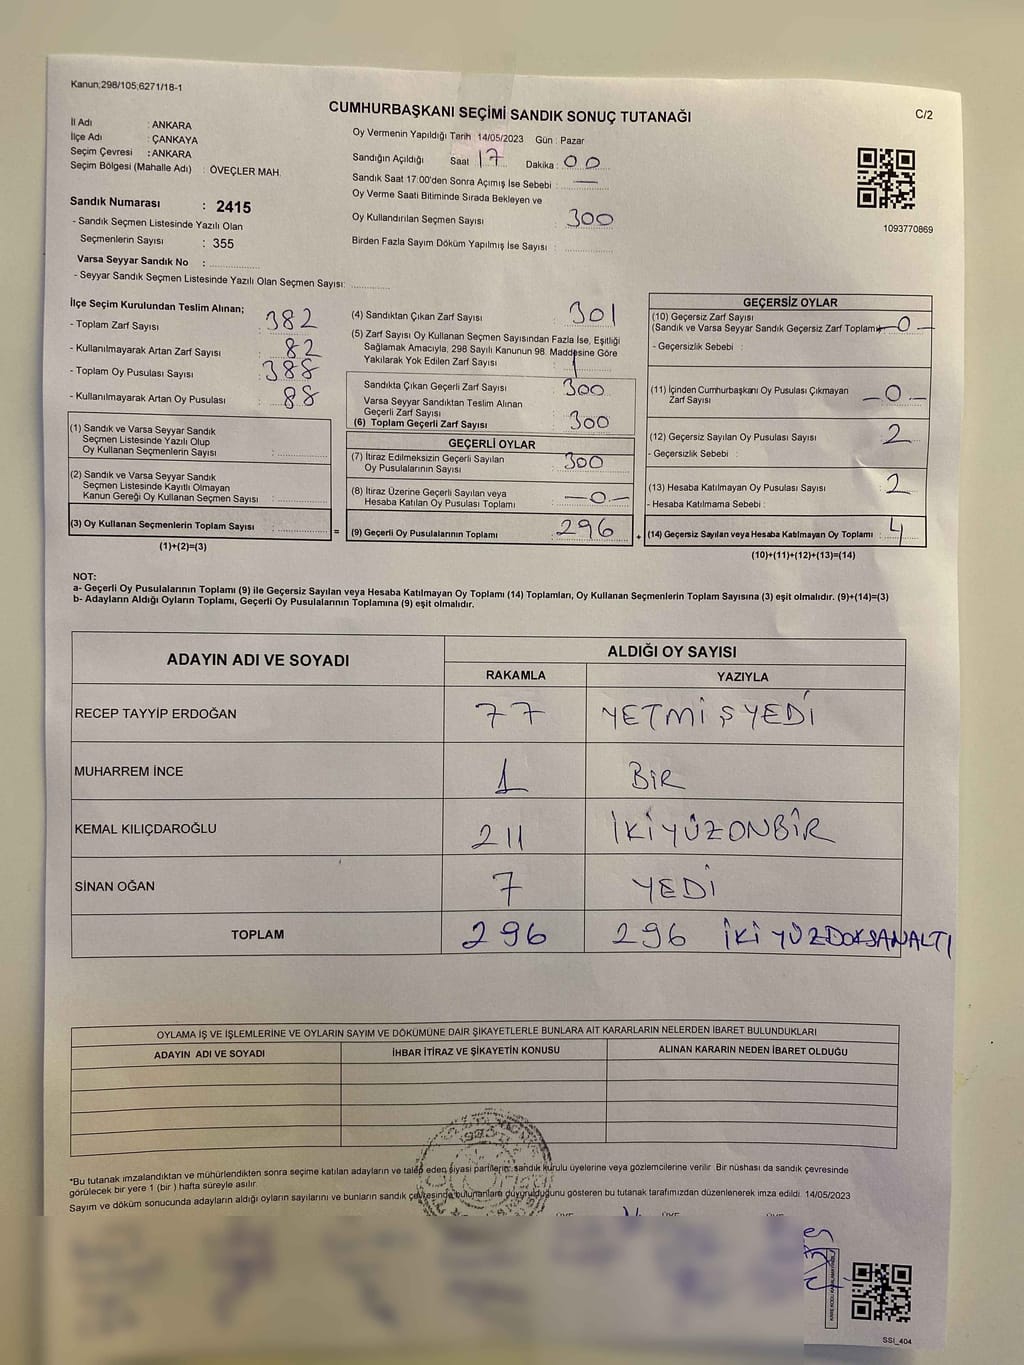 Kanun;298/105;6271/18-1
CUMHURBAŞKANI SEÇİMİ SANDIK SONUÇ TUTANAĞI
C/2
İl Adı : ANKARA
İlçe Adı : ÇANKAYA
Seçim Çevresi : ANKARA
Seçim Bölgesi (Mahalle Adı) : ÖVEÇLER MAH.
Sandık Numarası : 2415
- Sandık Seçmen Listesinde Yazılı Olan
Seçmenlerin Sayısı : 355
Varsa Seyyar Sandık No :
- Seyyar Sandık Seçmen Listesinde Yazılı Olan Seçmen Sayısı:
Oy Vermenin Yapıldığı Tarih 14/05/2023 Gün : Pazar
Sandığın Açıldığı Saat 17 Dakika : 00
Sandık Saat 17:00'den Sonra Açımış İse Sebebi : —
Oy Verme Saati Bitiminde Sırada Bekleyen ve
Oy Kullandırılan Seçmen Sayısı : 300
Birden Fazla Sayım Döküm Yapılmış İse Sayısı :
1093770869
İlçe Seçim Kurulundan Teslim Alınan;
- Toplam Zarf Sayısı : 382
- Kullanılmayarak Artan Zarf Sayısı : 82
- Toplam Oy Pusulası Sayısı : 388
- Kullanılmayarak Artan Oy Pusulası : 88
(1) Sandık ve Varsa Seyyar Sandık
Seçmen Listesinde Yazılı Olup
Oy Kullanan Seçmenlerin Sayısı :
(2) Sandık ve Varsa Seyyar Sandık
Seçmen Listesinde Kayıtlı Olmayan
Kanun Gereği Oy Kullanan Seçmen Sayısı :
(3) Oy Kullanan Seçmenlerin Toplam Sayısı :
(1)+(2)=(3)
(4) Sandıktan Çıkan Zarf Sayısı : 301
(5) Zarf Sayısı Oy Kullanan Seçmen Sayısından Fazla İse, Eşitliği
Sağlamak Amacıyla, 298 Sayılı Kanunun 98. Maddesine Göre
Yakılarak Yok Edilen Zarf Sayısı : 1
Sandıkta Çıkan Geçerli Zarf Sayısı : 300
Varsa Seyyar Sandıktan Teslim Alınan
Geçerli Zarf Sayısı :
(6) Toplam Geçerli Zarf Sayısı : 300
GEÇERLİ OYLAR
(7) İtiraz Edilmeksizin Geçerli Sayılan
Oy Pusulalarının Sayısı : 300
(8) İtiraz Üzerine Geçerli Sayılan veya
Hesaba Katılan Oy Pusulası Toplamı : —0—
= (9) Geçerli Oy Pusulalarının Toplamı : 296 +
GEÇERSİZ OYLAR
(10) Geçersiz Zarf Sayısı
(Sandık ve Varsa Seyyar Sandık Geçersiz Zarf Toplamı) —0—
- Geçersizlik Sebebi :
(11) İçinden Cumhurbaşkanı Oy Pusulası Çıkmayan
Zarf Sayısı : —0—
(12) Geçersiz Sayılan Oy Pusulası Sayısı : 2
- Geçersizlik Sebebi :
(13) Hesaba Katılmayan Oy Pusulası Sayısı : 2
- Hesaba Katılmama Sebebi :
(14) Geçersiz Sayılan veya Hesaba Katılmayan Oy Toplamı : 4
(10)+(11)+(12)+(13)=(14)
NOT:
a- Geçerli Oy Pusulalarının Toplamı (9) ile Geçersiz Sayılan veya Hesaba Katılmayan Oy Toplamı (14) Toplamları, Oy Kullanan Seçmenlerin Toplam Sayısına (3) eşit olmalıdır. (9)+(14)=(3)
b- Adayların Aldığı Oyların Toplamı, Geçerli Oy Pusulalarının Toplamına (9) eşit olmalıdır.
ADAYIN ADI VE SOYADI ALDIĞI OY SAYISI
RAKAMLA YAZIYLA
RECEP TAYYİP ERDOĞAN 77 YETMİŞYEDİ
MUHARREM İNCE 1 BİR
KEMAL KILIÇDAROĞLU 211 İKİYÜZONBİR
SİNAN OĞAN 7 YEDİ
TOPLAM 296 296 İKİYÜZDOKSANALTI
OYLAMA İŞ VE İŞLEMLERİNE VE OYLARIN SAYIM VE DÖKÜMÜNE DAİR ŞİKAYETLERLE BUNLARA AİT KARARLARIN NELERDEN İBARET BULUNDUKLARI
ADAYIN ADI VE SOYADI İHBAR İTİRAZ VE ŞİKAYETİN KONUSU ALINAN KARARIN NEDEN İBARET OLDUĞU
*Bu tutanak imzalandıktan ve mühürlendikten sonra seçime katılan adayların ve talep eden siyasi partilerin; sandık kurulu üyelerine veya gözlemcilerine verilir. Bir nüshası da sandık çevresinde
görülecek bir yere 1 (bir ) hafta süreyle asılır.
Sayım ve döküm sonucunda adayların aldığı oyların sayılarını ve bunların sandık çevresinde bulunanlara duyurulduğunu gösteren bu tutanak tarafımızdan düzenlenerek imza edildi. 14/05/2023
SSI_404